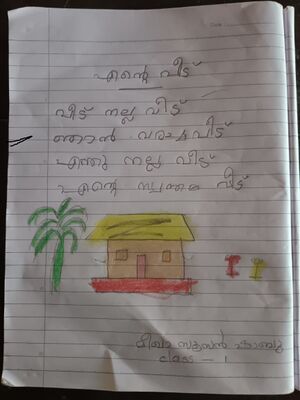 എന്റെ വീട്
വീട് നല്ല വീട്
ഞാൻ വരച്ച വീട്
എന്തു നല്ല വീട്
എന്റെ സ്വന്തം വീട്
class - 1